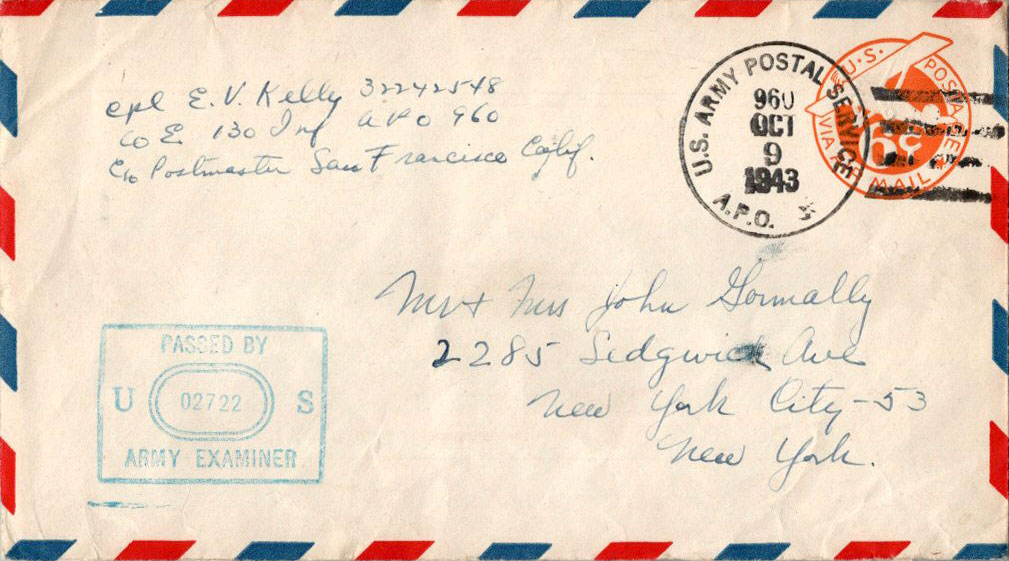 cpl E. V. Kelly 32242548
Co E 130 Inf APO 960
c/o Postmaster San Francisco Calif.
U.S. ARMY POSTAL SERVICE
960
OCT
9
1943
A.P.O.
U.S. POSTAGE
6¢
VIA AIR MAIL
Mr + Mrs John Gormally
2285 Sedgwick Ave
New York City-53
New York.
PASSED BY
U 02722 S
ARMY EXAMINER